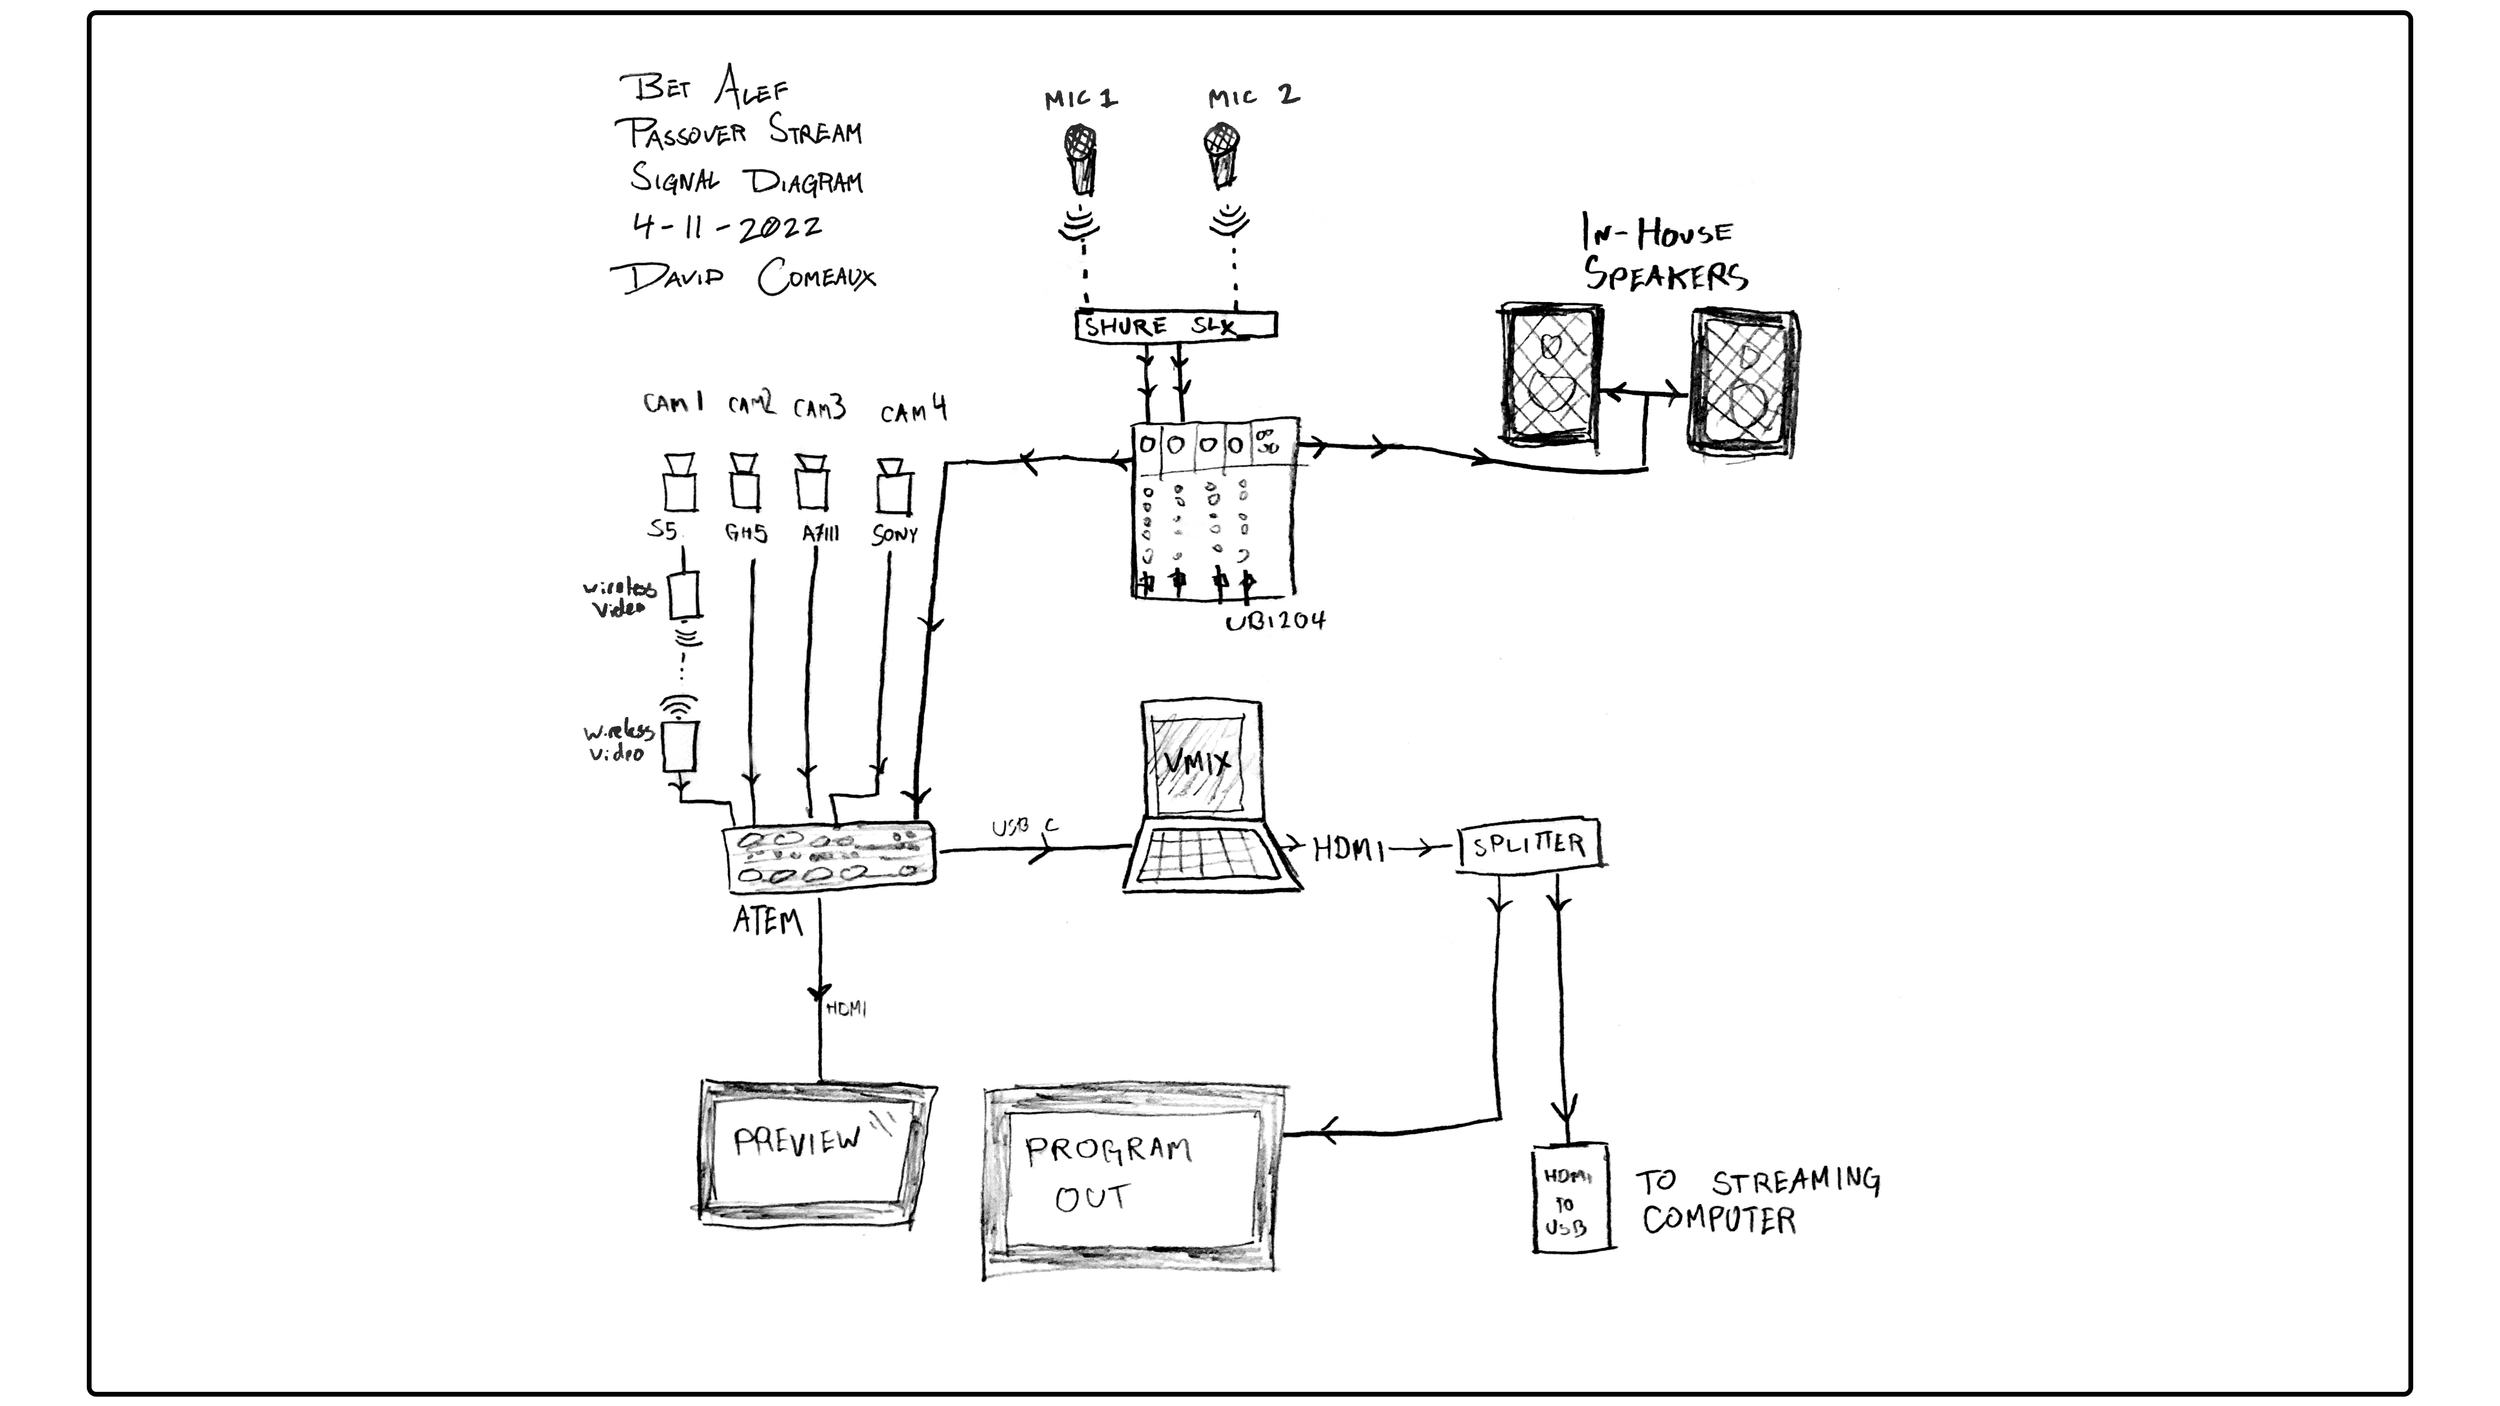 BET ALEF
PASSOVER STREAM
SIGNAL DIAGRAM
4-11-2022
DAVID COMEAUX
MIC 1
MIC 2
SHURE SLX
IN-HOUSE
SPEAKERS
CAM 1
CAM2
CAM3
CAM 4
S5
GH5
A7III
SONY
UB1204
wireless
video
wireless
video
VMIX
USB C
HDMI
SPLITTER
ATEM
HDMI
PREVIEW
PROGRAM
OUT
HDMI
TO
USB
TO STREAMING
COMPUTER